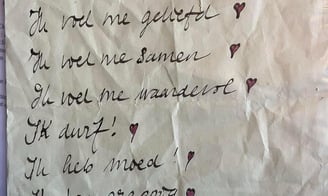 Ik voel me geliefd
Ik voel me samen
Ik voel me waardevol
Ik durf!
Ik heb moed!
Ik